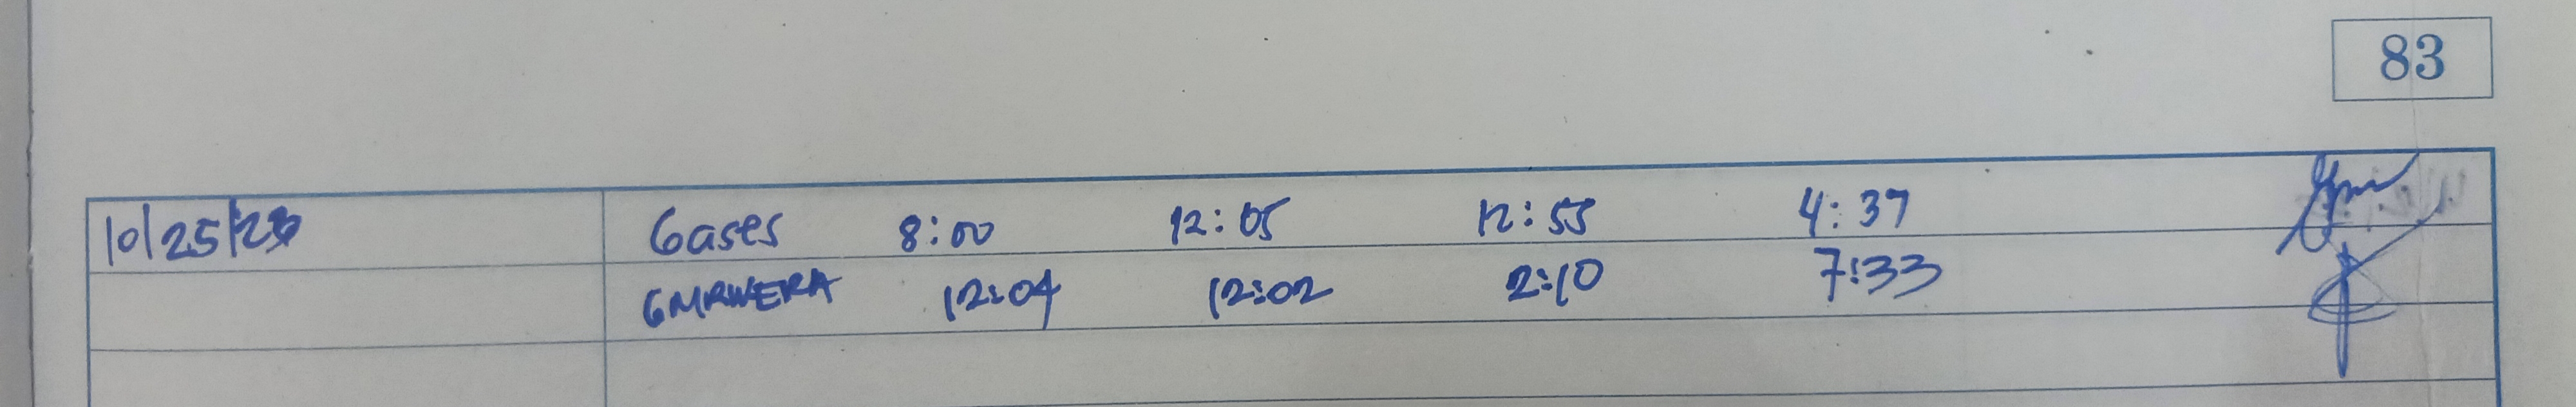 83
10/25/23 Gases 8:00 12:05 12:55 4:37
12:04 12:02 2:10 7:33